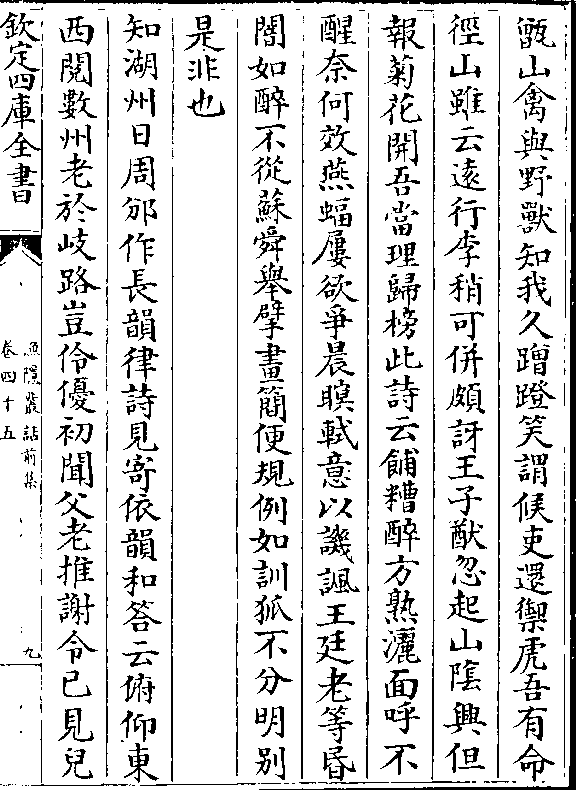 甑山禽與野獸知我久蹭蹬笑謂候吏還禦虎吾有命
徑山雖云遠行李稍可併頗訝王子猷忽起山隂興但
報菊花開吾當理歸榜此詩云餔糟醉方熟灑面呼不
醒奈何效燕蝠屢欲爭晨暝軾意以譏諷王廷老等昬
闇如醉不從蘇舜舉擘畫簡便規例如訓狐不分明别
是非也
知湖州日周邠作長韻律詩見寄依韻和答云俯仰東
西閱數州老於岐路豈伶優初聞父老推謝令已見兒
欽定四庫全書
漁隱叢話前集
卷四十五
九